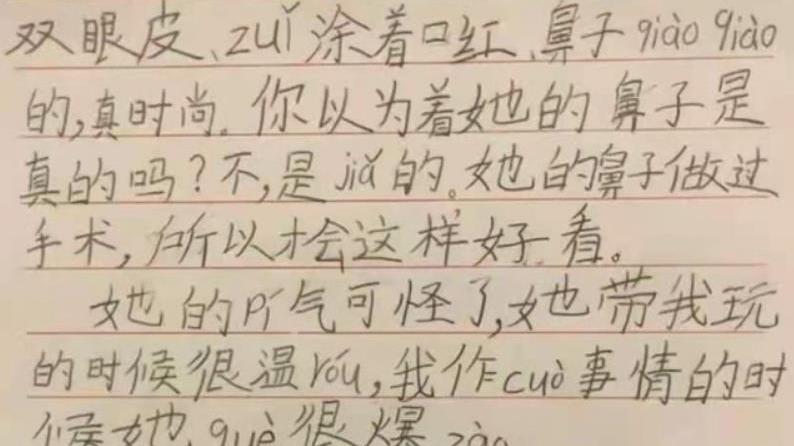 双眼皮、zuǐ涂着口红、鼻子qiào qiào
的,真时尚。你以为着她的鼻子是
真的吗?不,是jiǎ的。她的鼻子做过
手术,所以才会这样好看。
她的pí气可怪了,她带我玩
的时候很温róu,我作cuò事情的时
候她què很爆zào